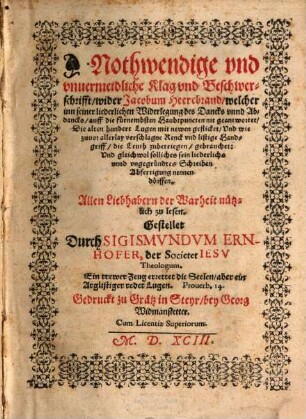 Nothwendige vnd
vnuermeidliche Klag vnd Beschwer-
schrifft / wider Jacobum Heerebrand / welcher
inn seiner liederlichen Widerlegung des Dancks vnnd Ab-
dancks / auff die fürnembsten Hauptpuncten nit geantwortet /
Die alten hundert Lugen mit newen geflicket / Vnd wie
zuuor allerlay verschlagne Renck vnd listige Hand-
griff / die Leuth zubetriegen / gebrauchet:
Vnd gleichwol sölliches sein liederlichs
vnnd vngegründtes Schreiben
Abfertigung nennen
dörffen.
Allen Liebhabern der Warheit nütz-
lich zu lesen.
Gestellet
Durch SIGISMVNDVM ERN-
HOFER, der Societet IESV
Theologum.
Ein trewer Zeug errettet die Seelen / aber ein
Arglistiger redet Lugen. Prouerb. 14.
Gedruckt zu Grätz in Steyr / bey Georg
Widmanstetter.
Cum Licentia Superiorum.
M. D. XCIII.